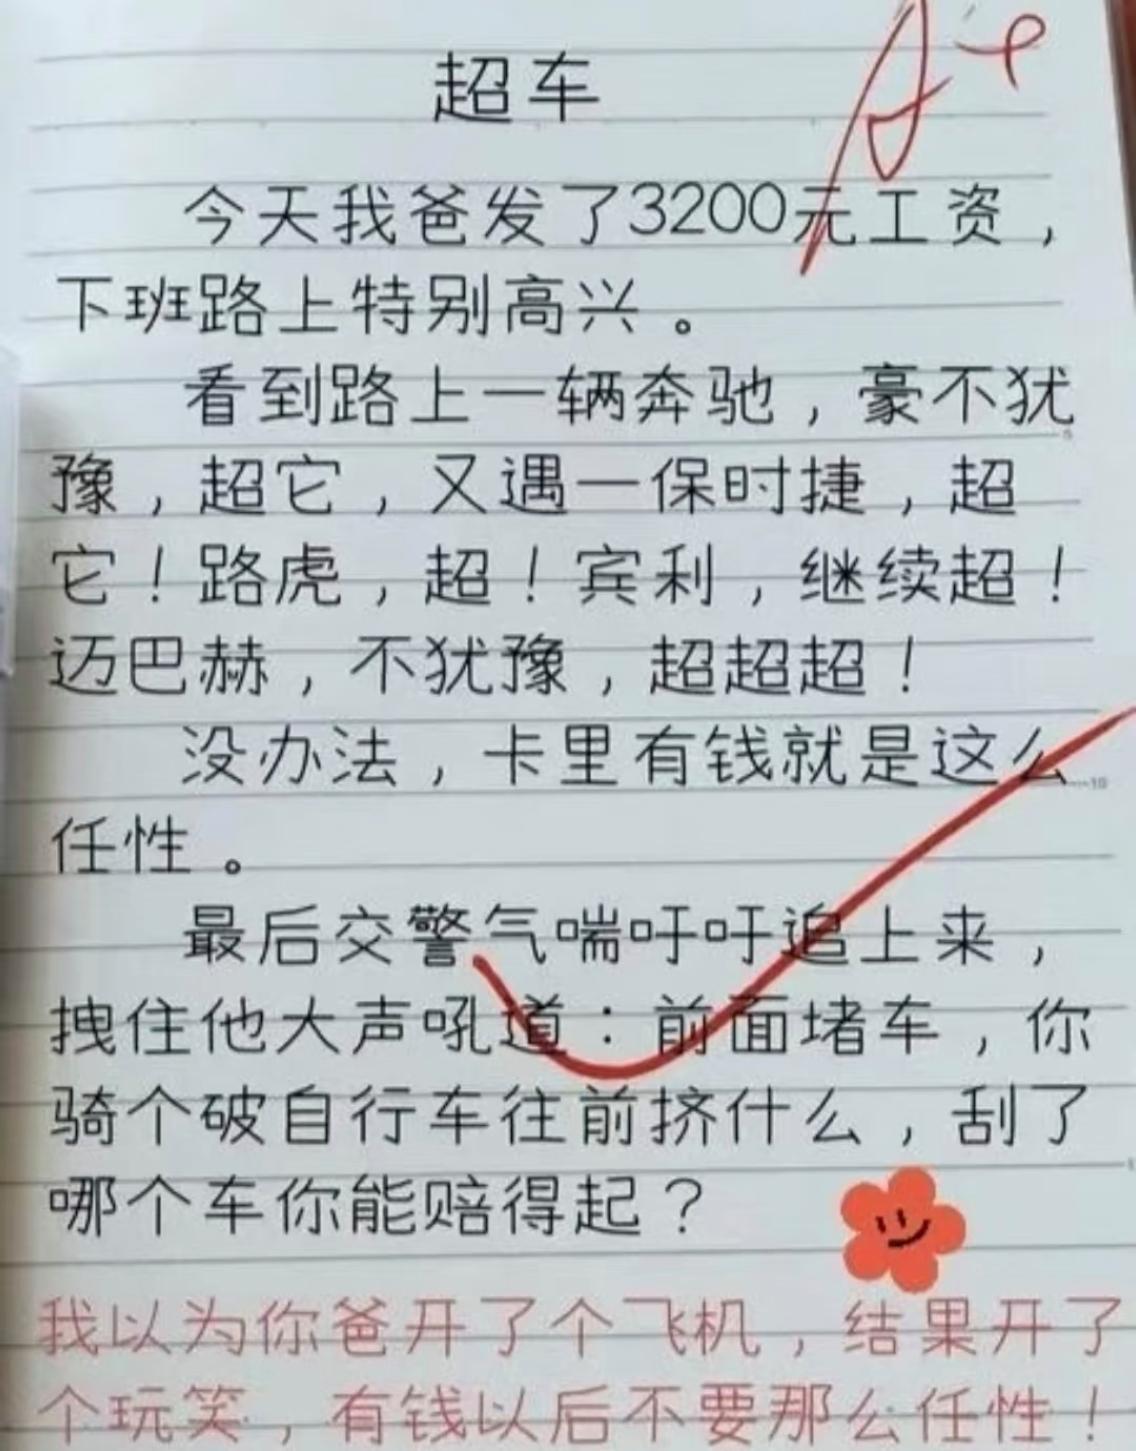 超车
今天我爸发了3200元工资，
下班路上特别高兴。
看到路上一辆奔驰，豪不犹
豫，超它，又遇一保时捷，超
它！路虎，超！宾利，继续超！
迈巴赫，不犹豫，超超超！
没办法，卡里有钱就是这么
任性。
最后交警气喘吁吁追上来，
拽住他大声吼道：前面堵车，你
骑个破自行车往前挤什么，刮了
哪个车你能赔得起？
我以为你爸开了个飞机，结果开了
个玩笑，有钱以后不要那么任性！